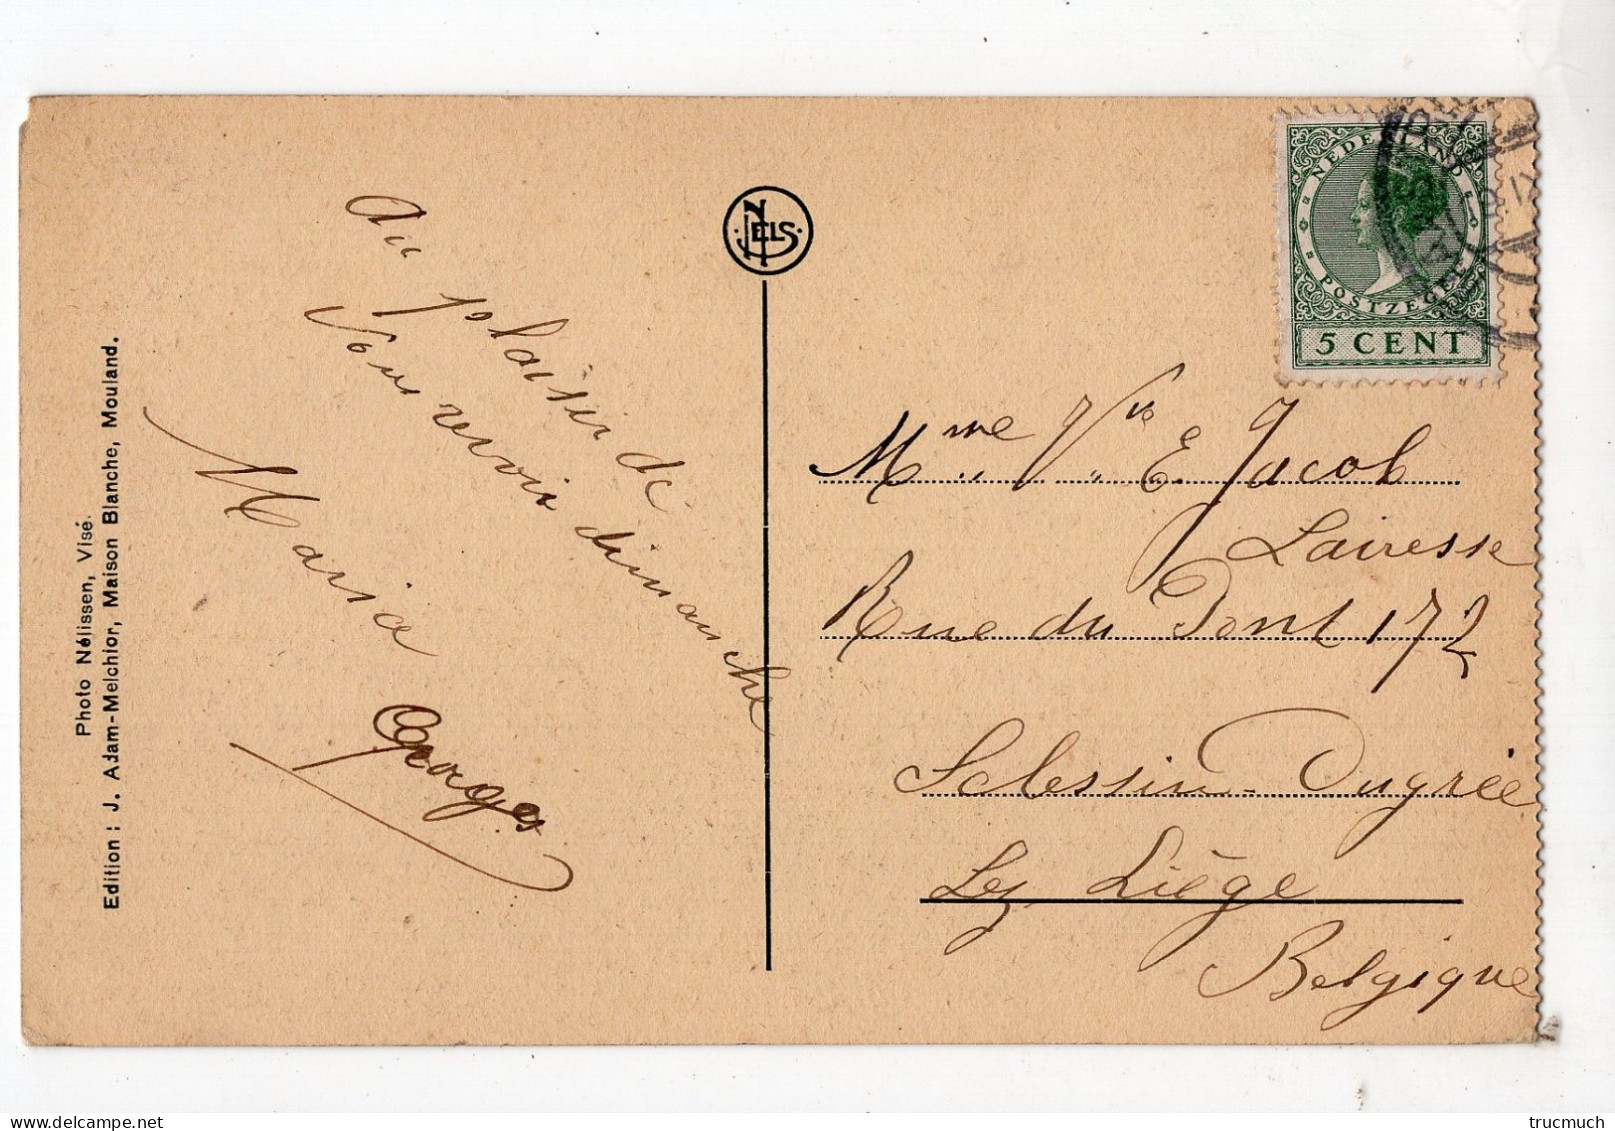 Photo Nélissen, Visé.
Edition : J. Adam-Melchior, Maison Blanche, Mouland.
Au plaisir de
vous revoir dimanche
Maria
Georges
NELS
NEDERLAND
POSTZEGEL
5 CENT
Mme Vve E. Jacob
Lairesse
Rue du Pont 172
Sclessin-Ougrée
Lez Liège
Belgique
delcampe.net
trucmuch